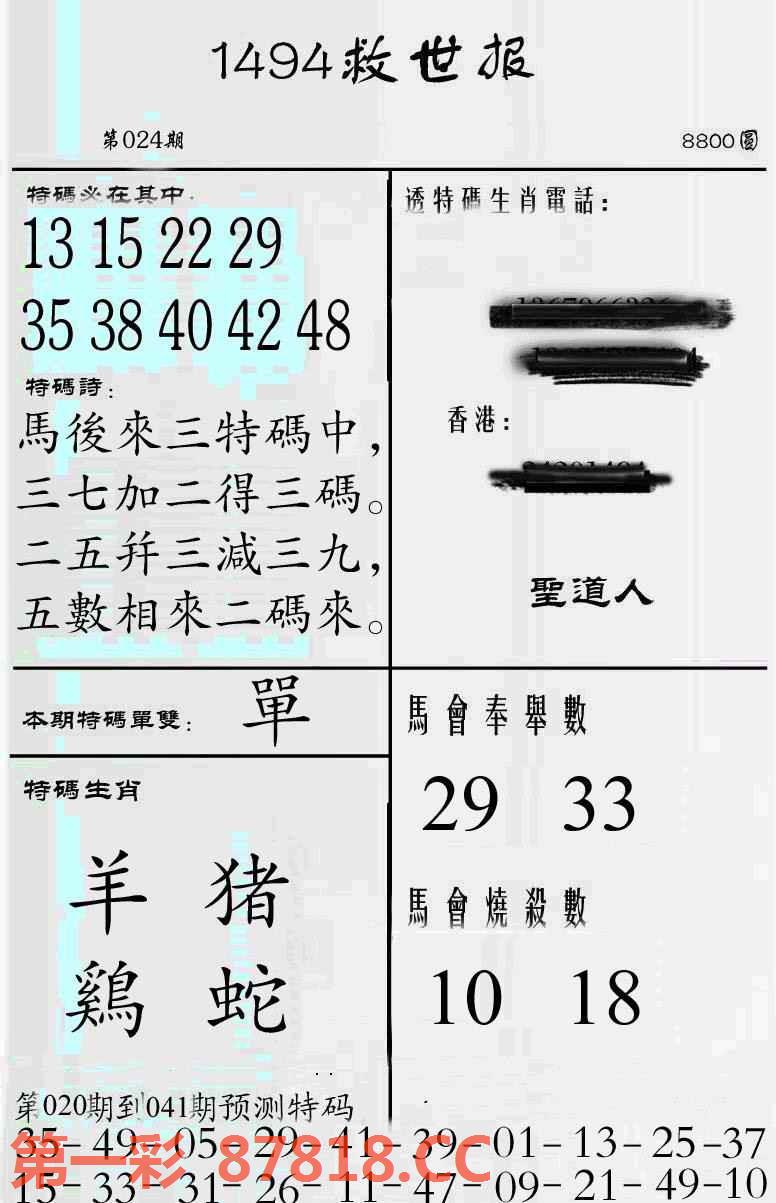 1494救世报
第024期
8800圓
特碼必在其中:
13 15 22 29
35 38 40 42 48
特碼詩:
馬後來三特碼中,
三七加二得三碼。
二五幷三減三九,
五數相來二碼來。
透特碼生肖電話:
香港:
聖道人
本期特碼單雙:
單
特碼生肖
羊 猪
鷄 蛇
馬會奉舉數
29 33
馬會燒殺數
10 18
第020期到041期预测特码
35-49-05-29-41-39-01-13-25-37
15-33-31-26-11-47-09-21-49-10
第一彩 87818.CC